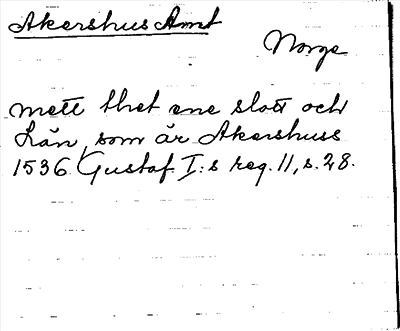 Akershus Amt
Norge
mett thet ene slott och
Län, som är Akershuss
1536. Gustaf I:s reg. 11, s. 28.